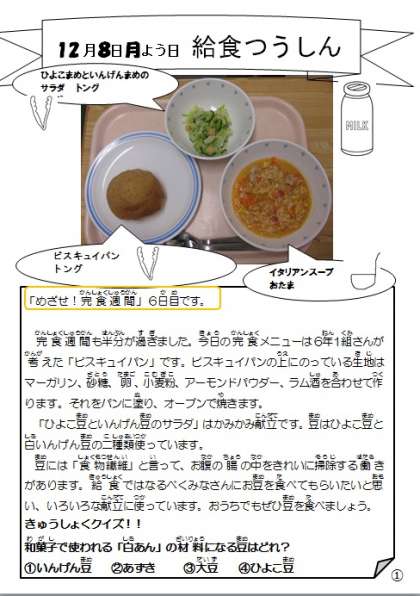 12月8日月よう日 給食つうしん
ひよこまめといんげんまめの
サラダ トング
MILK
ビスキュイパン
トング
イタリアンスープ
おたま
「めざせ！完食週間」6日目です。
完食週間も半分が過ぎました。今日の完食メニューは6年1組さんが
考えた「ビスキュイパン」です。ビスキュイパンの上にのっている生地は
マーガリン、砂糖、卵、小麦粉、アーモンドパウダー、ラム酒を合わせて作
ります。それをパンに塗り、オーブンで焼きます。
「ひよこ豆といんげん豆のサラダ」はかみかみ献立です。豆はひよこ豆と
白いんげん豆の二種類使っています。
豆には「食物繊維」と言って、お腹の腸の中をきれいに掃除する働き
があります。給食ではなるべくみなさんにお豆を食べてもらいたいと思
い、いろいろな献立に使っています。おうちでもぜひ豆を食べましょう。
きゅうしょくクイズ！！
和菓子で使われる「白あん」の材料になる豆はどれ？
①いんげん豆 ②あずき ③大豆 ④ひよこ豆
①